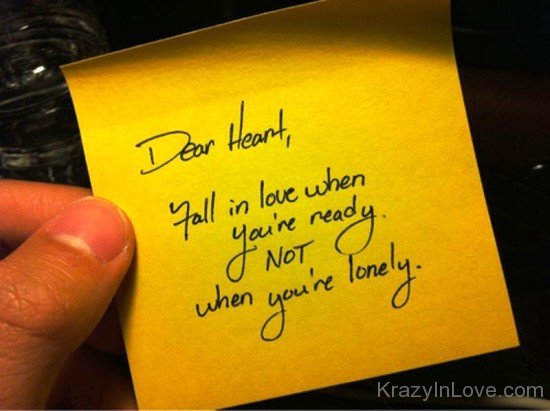 Dear Heart,
Fall in love when
you're ready.
NOT
when you're lonely.
KrazyInLove.com